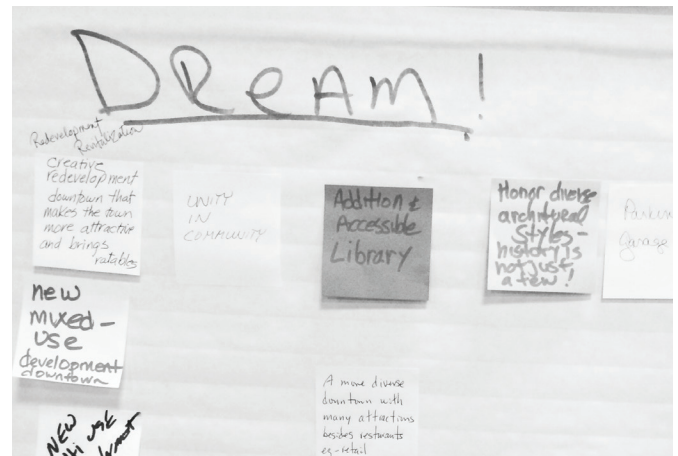 DReAM!
Redevelopment
Revitalization
Creative
redevelopment
downtown that
makes the town
more attractive
and brings
ratables
UNITY
IN
COMMUNITY
Addition &
Accessible
Library
Honor diverse
architural
Styles-
history is
not just
a few!
Parkin
Garage
new
mixed-
use
development
downtown
A more diverse
downtown with
many attractions
besides resturants
eg-retail
NEW
USE